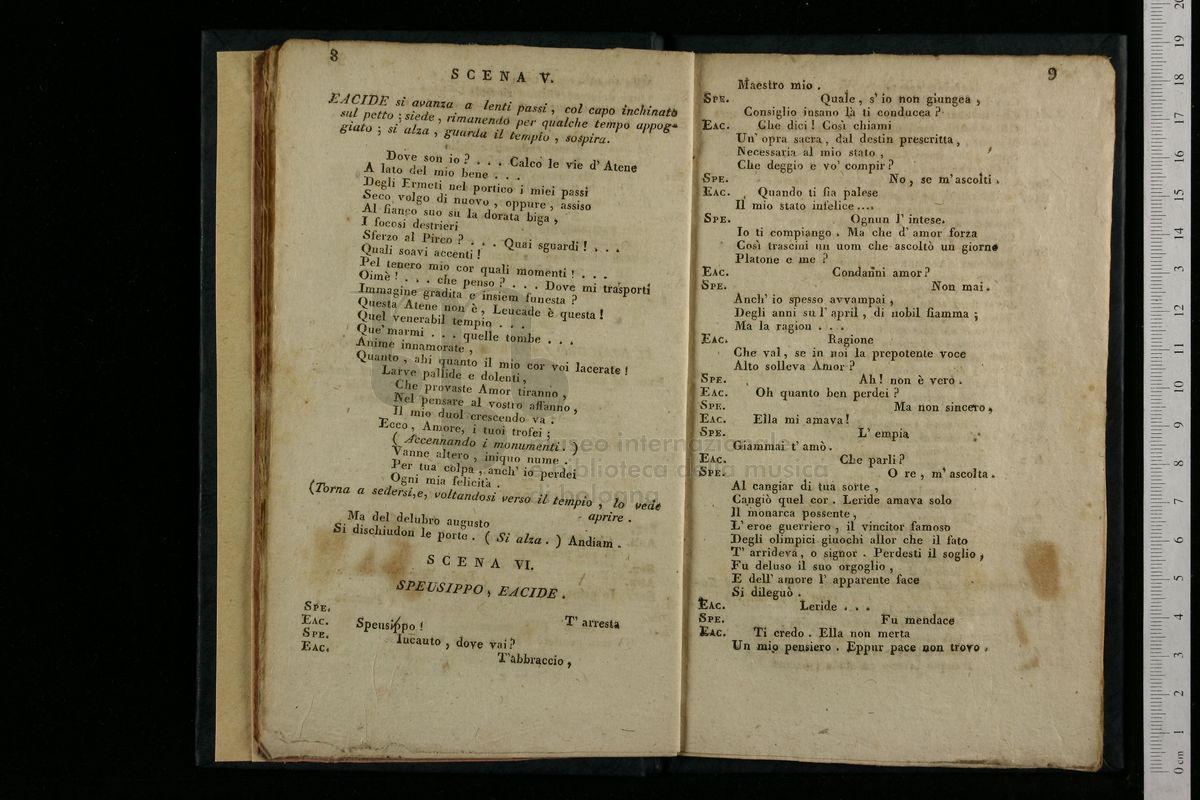 8
SCENA V.
EACIDE si avanza a lenti passi, col capo inchinato
sul petto; siede, rimanendo per qualche tempo appog-
giato; si alza, guarda il tempio, sospira.
Dove son io? . . . Calco le vie d' Atene
A lato del mio bene . . .
Degli Ermeti nel portico i miei passi
Seco volgo di nuovo, oppure, assiso
Al fianco suo su la dorata biga,
I focosi destrieri
Sferzo al Pireo? . . . Quai sguardi! . . .
Quali soavi accenti!
Pel tenero mio cor quali momenti! . . .
Oimè! . . . che penso? . . . Dove mi trasporti
Immagine gradita e insiem funesta?
Questa Atene non è, Leucade è questa!
Quel venerabil tempio . . .
Que' marmi . . . quelle tombe . . .
Anime innamorate,
Quanto, ahi quanto il mio cor voi lacerate!
Larve pallide e dolenti,
Che provaste Amor tiranno,
Nel pensare al vostro affanno,
Il mio duol crescendo va.
Ecco, Amore, i tuoi trofei;
( Accennando i monumenti. )
Vanne altero, iniquo nume.
Per tua colpa, anch' io perdei
Ogni mia felicità.
(Torna a sedersi, e, voltandosi verso il tempio, lo vede
aprire.
Ma del delubro augusto
Si dischiudon le porte. ( Si alza. ) Andiam.
SCENA VI.
SPEUSIPPO, EACIDE.
SPE. T' arresta
EAC. Speusippo!
SPE. Incauto, dove vai?
EAC. T'abbraccio,
9
Maestro mio.
SPE. Quale, s' io non giungea,
Consiglio insano là ti conducea?
EAC. Che dici! Così chiami
Un' opra sacra, dal destin prescritta,
Necessaria al mio stato,
Che deggio e vo' compir?
SPE. No, se m' ascolti.
EAC. Quando ti fia palese
Il mio stato infelice ....
SPE. Ognun l' intese.
Io ti compiango. Ma che d' amor forza
Così trascini un uom che ascoltò un giorno
Platone e me?
EAC. Condanni amor?
SPE. Non mai.
Anch' io spesso avvampai,
Degli anni su l' april, di nobil fiamma;
Ma la ragion . . .
EAC. Ragione
Che val, se in noi la prepotente voce
Alto solleva Amor?
SPE. Ah! non è vero.
EAC. Oh quanto ben perdei?
SPE. Ma non sincero,
EAC. Ella mi amava!
SPE. L' empia
Giammai t' amò.
EAC. Che parli?
SPE. O re, m' ascolta.
Al cangiar di tua sorte,
Cangiò quel cor. Leride amava solo
Il monarca possente,
L' eroe guerriero, il vincitor famoso
Degli olimpici giuochi allor che il fato
T' arrideva, o signor. Perdesti il soglio,
Fu deluso il suo orgoglio,
E dell' amore l' apparente face
Si dileguò.
EAC. Leride . . .
SPE. Fu mendace
EAC. Ti credo. Ella non merta
Un mio pensiero. Eppur pace non trovo.
museo internazionale
e biblioteca della musica
di bologna